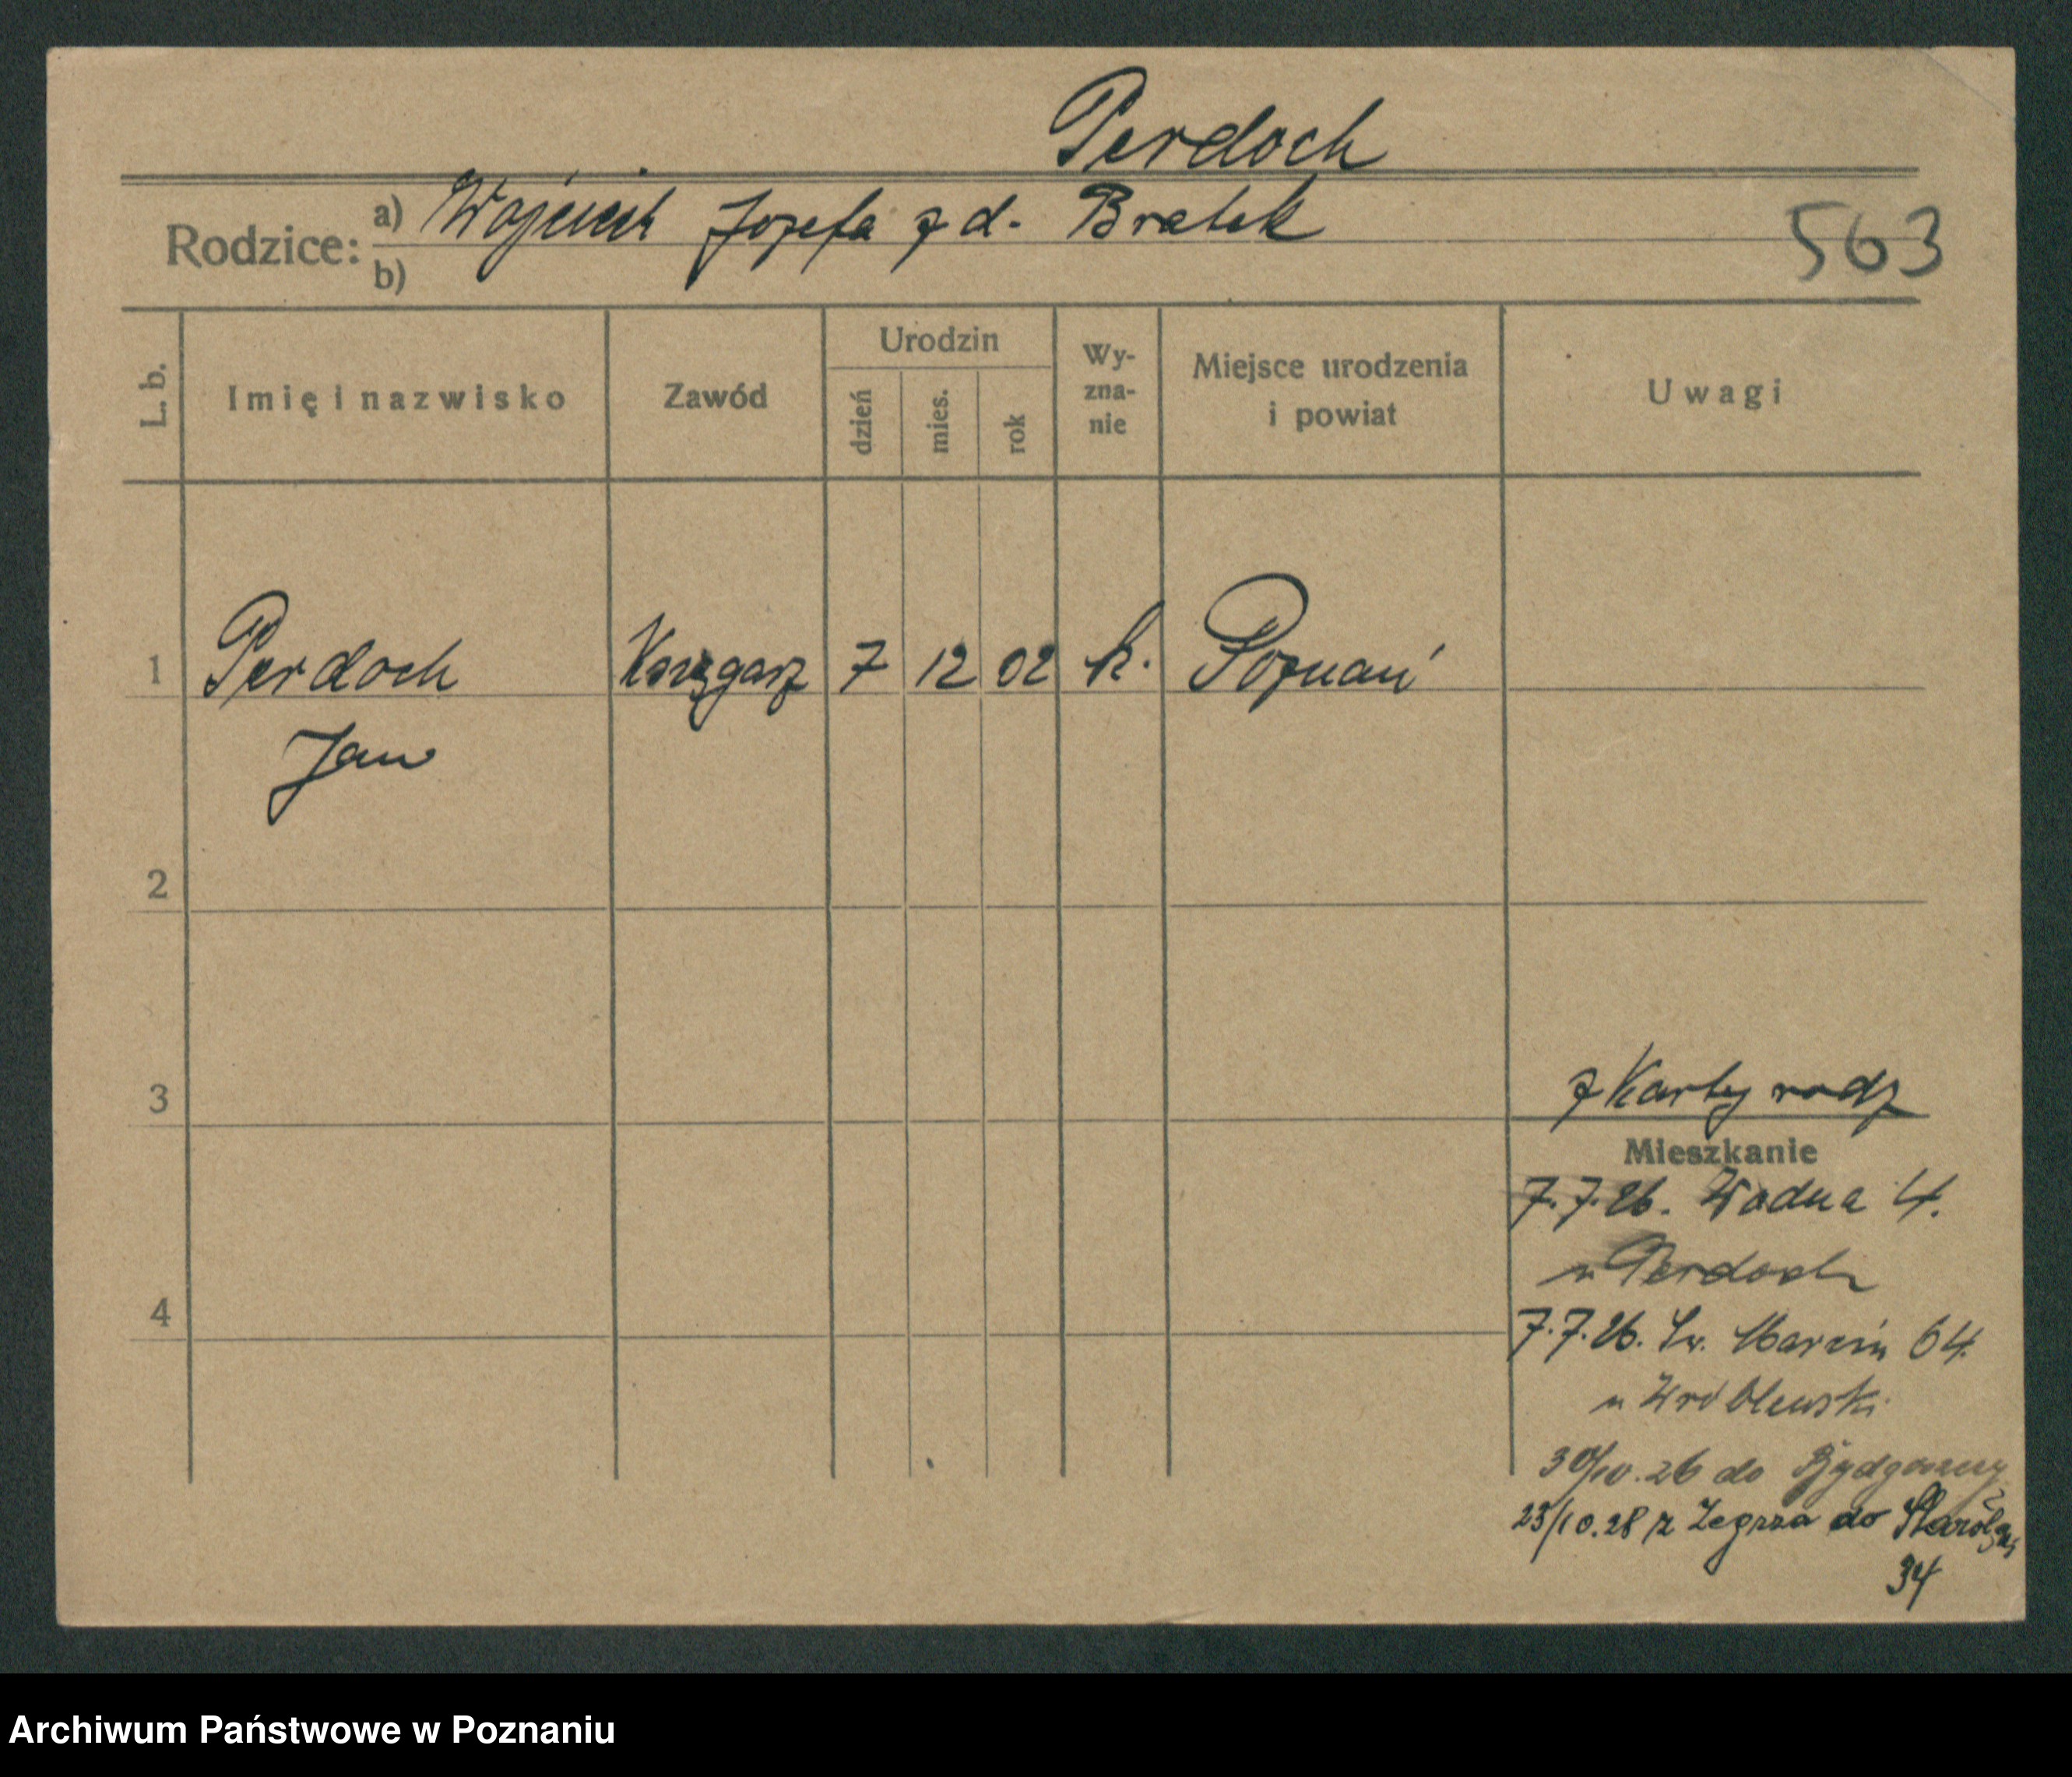 Perdoch
Rodzice: a) Wojciech Józefa z d. Bratek
b)
563
L. b.
Imię i nazwisko
Zawód
Urodzin
dzień
mies.
rok
Wy-
zna-
nie
Miejsce urodzenia
i powiat
Uwagi
1 Perdoch Księgarz 7 12 02 k. Poznań
Jan
2
3
z Karty rodz
Mieszkanie
7.7.26. Wodna 4.
u Perdoch
4
7.7.26. Św. Marcin 64.
u Wróblewski
30/10.26 do Bydgoszczy
23/10.28 z Zegrza do
34
Archiwum Państwowe w Poznaniu